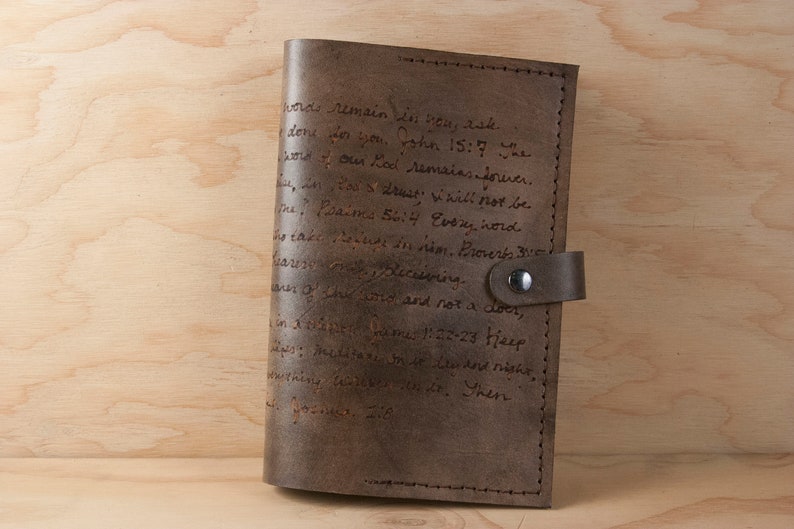 words remain in you, ask
done for you. John 15:7 The
word of our God remains forever.
in God I trust; I will not be
me? Psalms 56:4 Every word
who take refuge in him. Proverbs 30:5
deceiving
of the word and not a doer,
in a mirror. James 1:22-23 Keep
meditate on it day and night,
everything written in it. Then
Joshua. 1:8